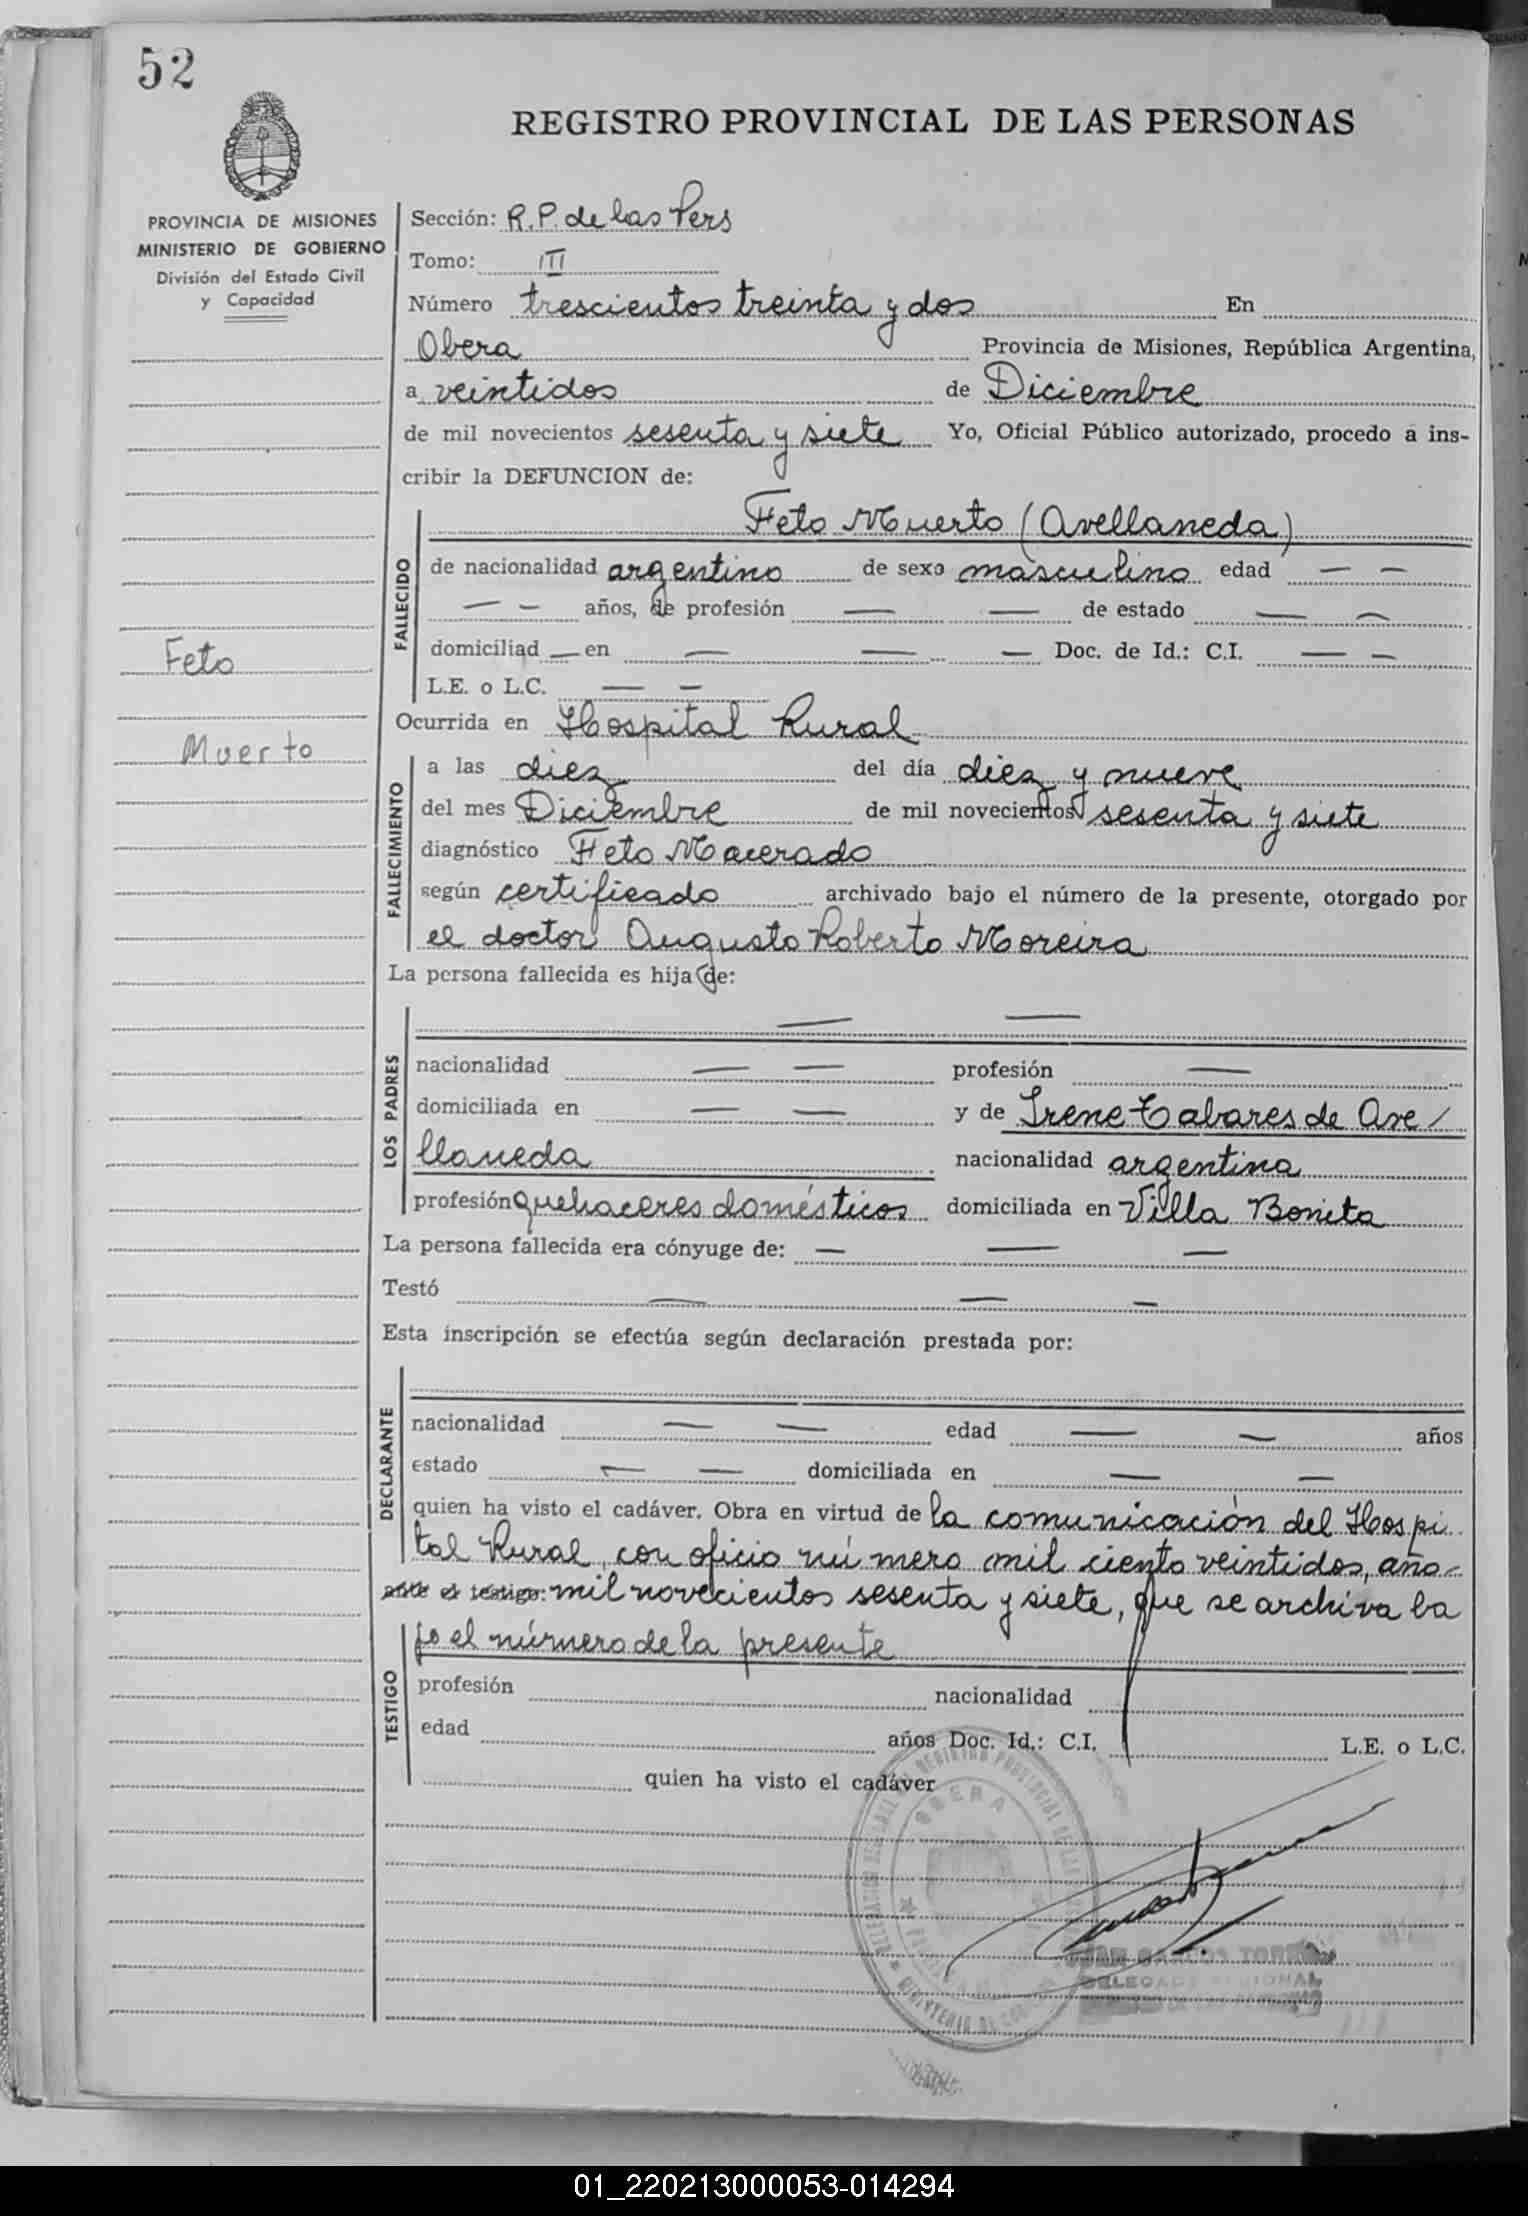 52
REGISTRO PROVINCIAL DE LAS PERSONAS
PROVINCIA DE MISIONES
MINISTERIO DE GOBIERNO
División del Estado Civil
y Capacidad
Sección: R.P. de las Pers
Tomo: III
Número trescientos treinta y dos En
Obera Provincia de Misiones, República Argentina,
a veintidos de Diciembre
de mil novecientos sesenta y siete Yo, Oficial Público autorizado, procedo a ins-
cribir la DEFUNCION de:
Feto Muerto (Avellaneda)
FALLECIDO
de nacionalidad argentino de sexo masculino edad — —
— — años, de profesión — — de estado — —
domiciliad — en — — — Doc. de Id.: C.I. — —
L.E. o L.C. — —
Feto
Muerto
Ocurrida en Hospital Rural
FALLECIMIENTO
a las diez del día diez y nueve
del mes Diciembre de mil novecientos sesenta y siete
diagnóstico Feto Macerado
según certificado archivado bajo el número de la presente, otorgado por
el doctor Augusto Roberto Moreira
La persona fallecida es hija de:
LOS PADRES
— —
nacionalidad — — profesión —
domiciliada en — — y de Irene Tabares de Ave/
llaneda nacionalidad argentina
profesión quehaceres domésticos domiciliada en Villa Bonita
La persona fallecida era cónyuge de: — — —
Testó — — —
Esta inscripción se efectúa según declaración prestada por:
DECLARANTE
nacionalidad — — edad — — años
estado — — domiciliada en — —
quien ha visto el cadáver. Obra en virtud de la comunicación del Hospi
tal Rural, con oficio número mil ciento veintidos, año-
ante el testigo: mil novecientos sesenta y siete, que se archiva ba
jo el número de la presente
TESTIGO
profesión nacionalidad
edad años Doc. Id.: C.I. L.E. o L.C.
quien ha visto el cadáver
OBERA
DELEGADO REGIONAL
01_220213000053-014294